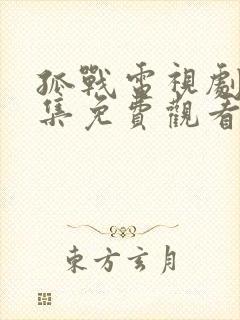 孤戰電視劇
集免費觀看
東方玄月